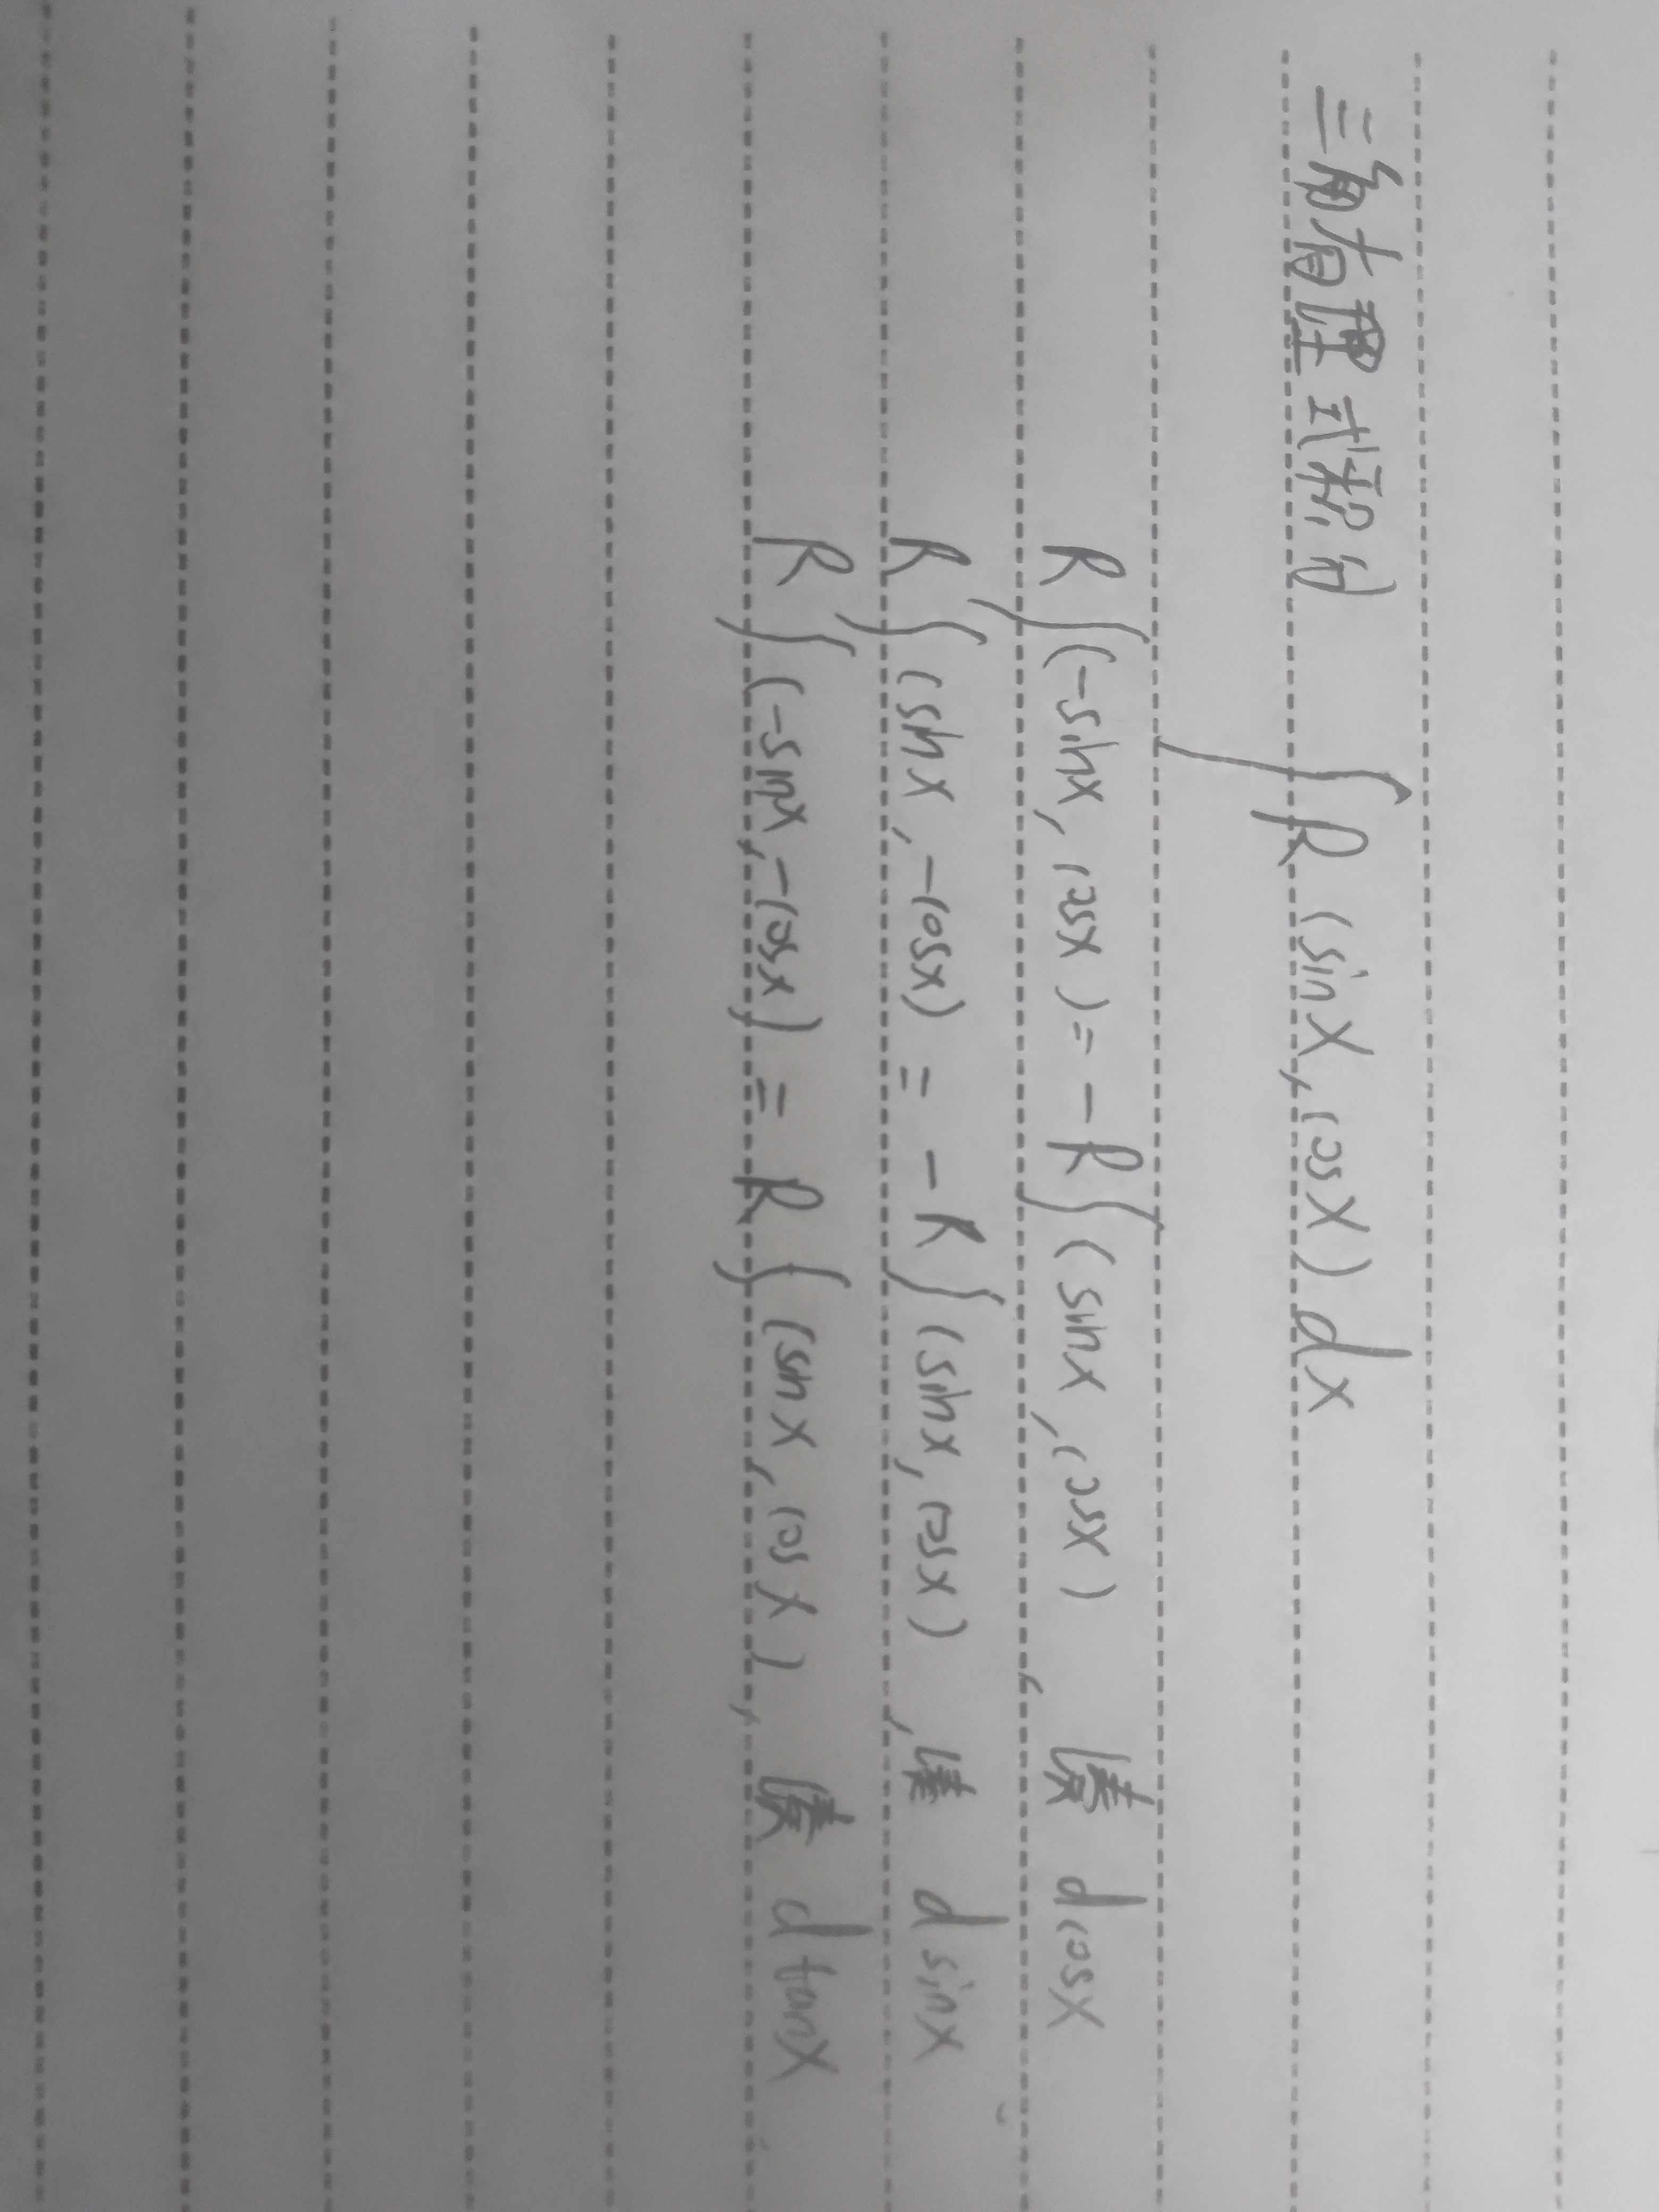 三角有理式积分 ∫R(sinx,cosx)dx
R∫(-sinx,cosx)=-R∫(sinx,cosx),凑dcosx
R∫(sinx,-cosx)=-R∫(sinx,cosx),凑dsinx
R∫(-sinx,-cosx)=R∫(sinx,cosx),凑dtanx